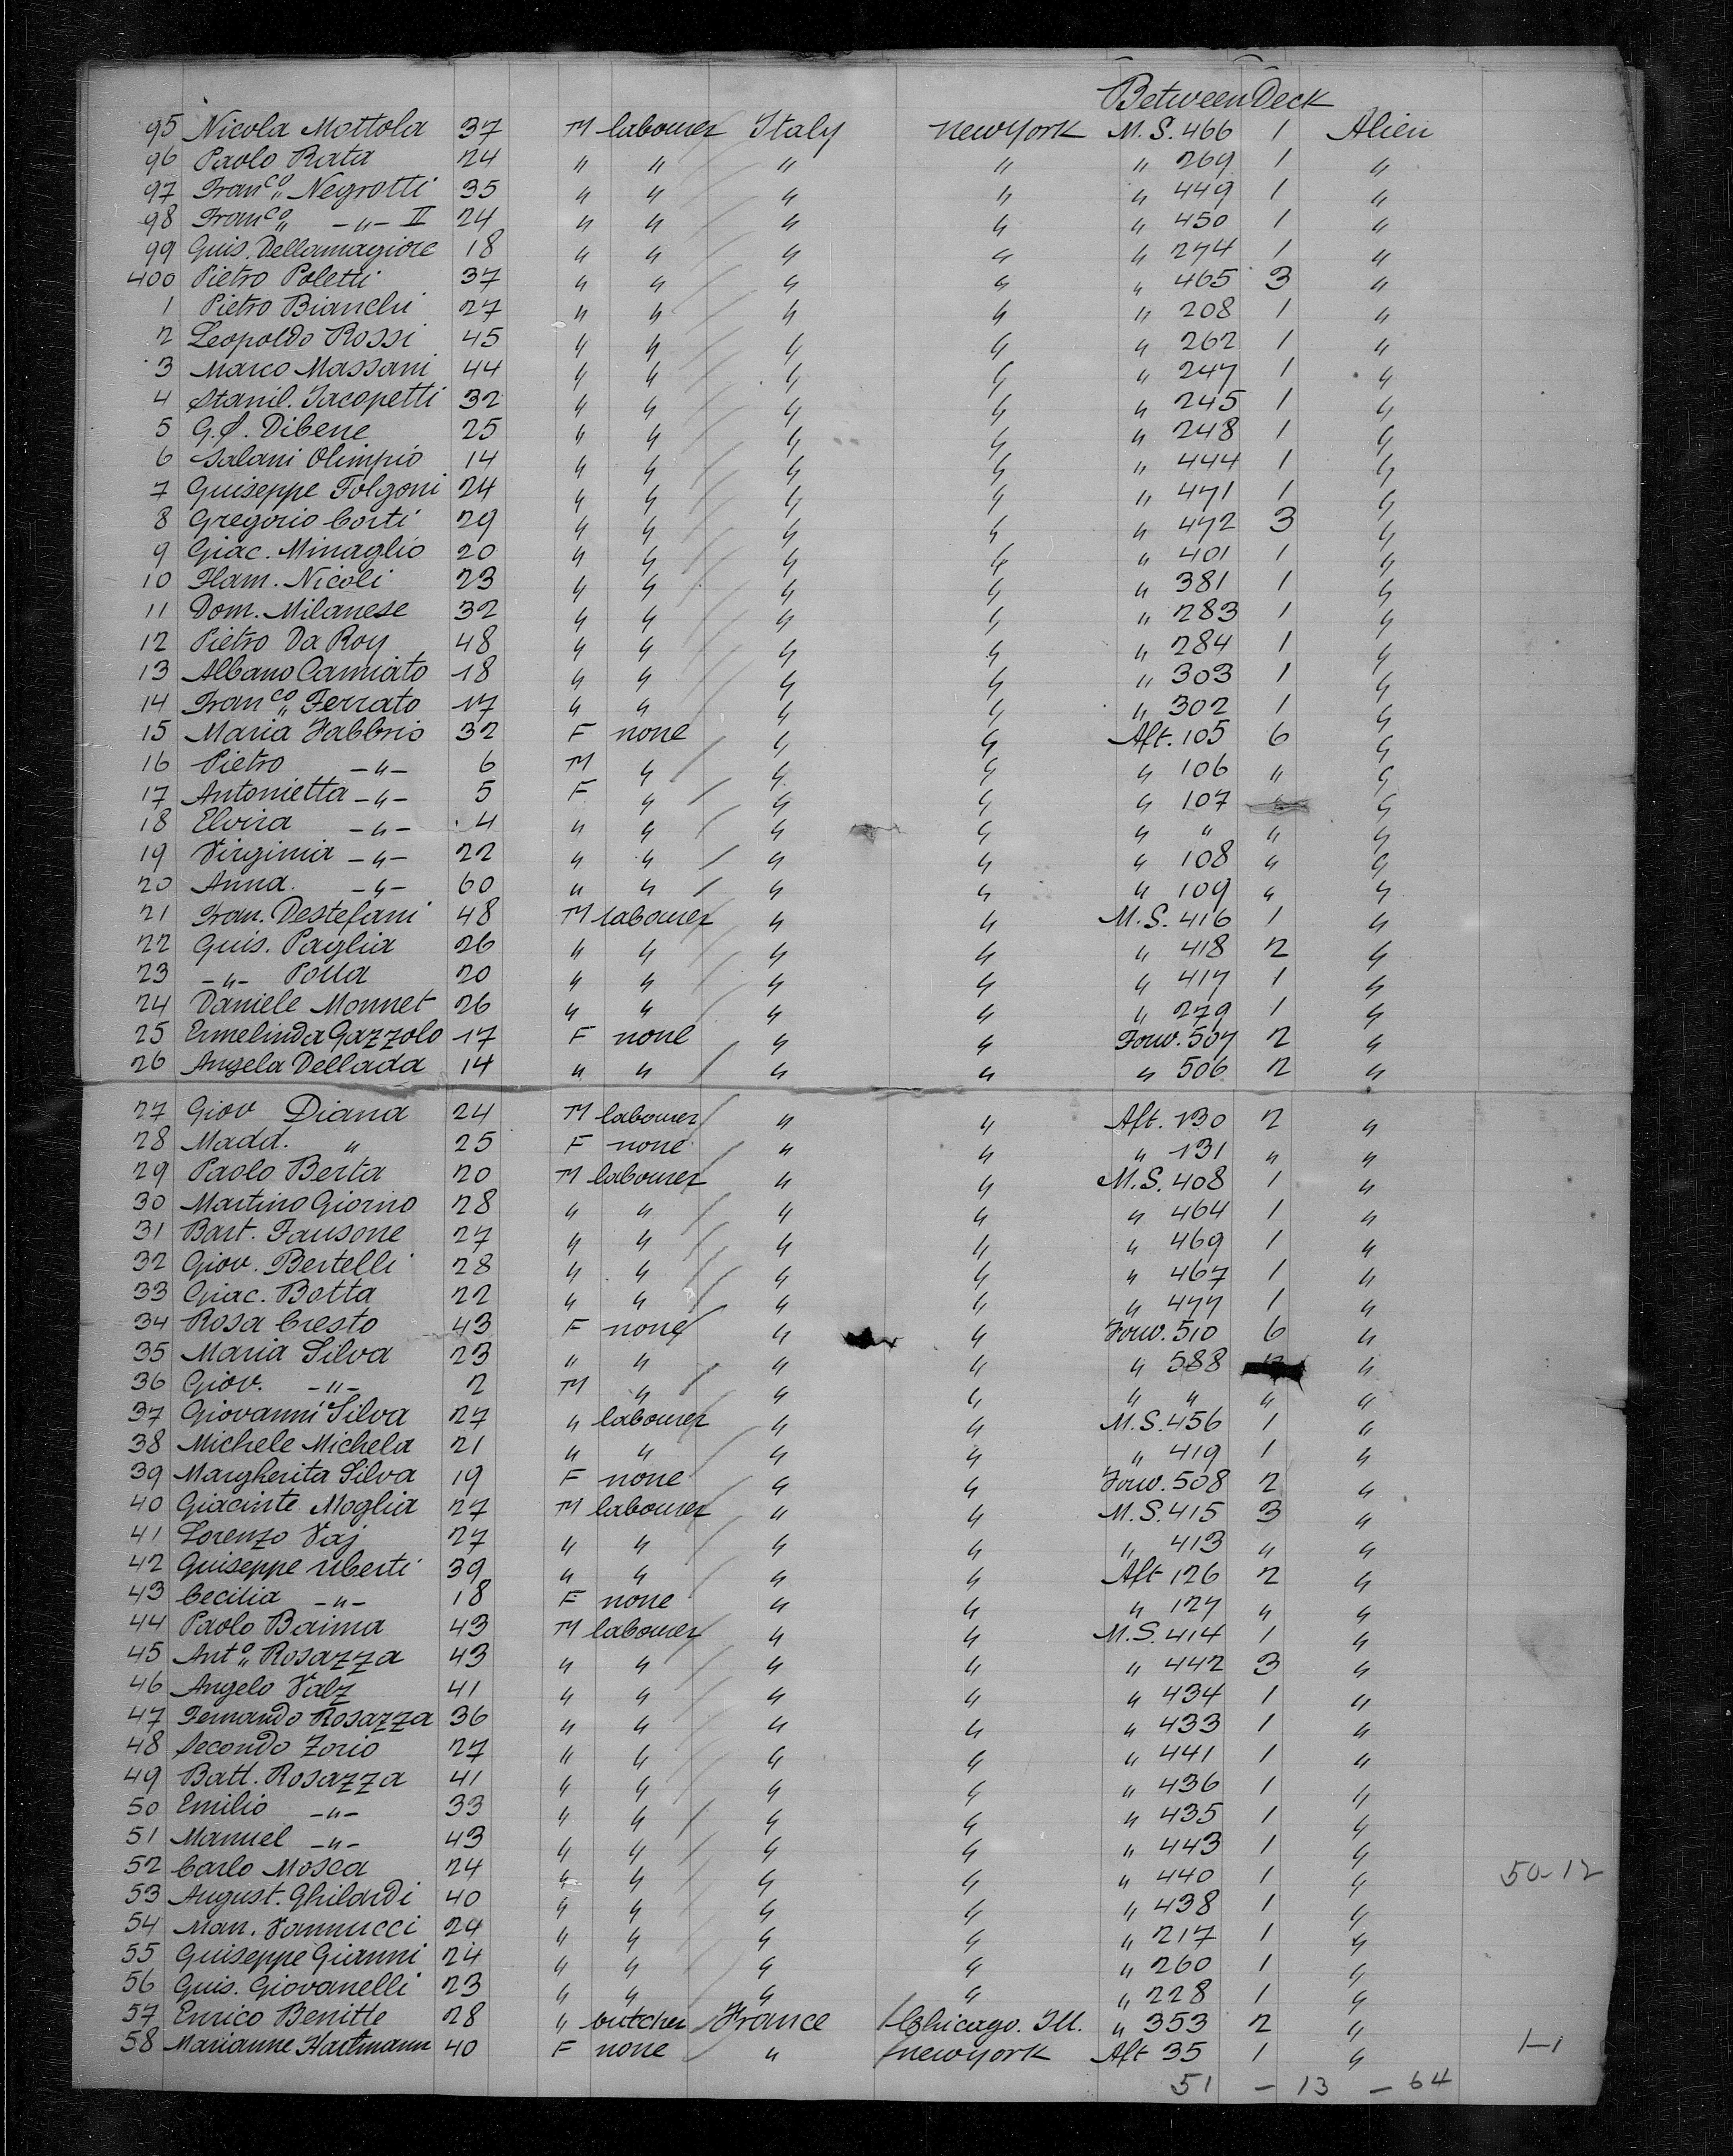 Between Deck
95 Nicola Mottola 37 M labourer Italy New York M.S. 466 1 Alien
96 Paolo Rata 24 " " " " " 269 1 "
97 Franco Negrotti 35 " " " " " 449 1 "
98 Franco -"- II 24 " " " " " 450 1 "
99 Guis. Dellamagiore 18 " " " " " 274 1 "
400 Pietro Poletti 37 " " " " " 465 3 "
1 Pietro Bianchi 27 " " " " " 208 1 "
2 Leopoldo Rossi 45 " " " " " 262 1 "
3 Marco Massani 44 " " " " " 247 1 "
4 Stanil. Iacopetti 32 " " " " " 245 1 "
5 G. S. Dibene 25 " " " " " 248 1 "
6 Salani Olimpio 14 " " " " " 444 1 "
7 Guiseppe Folgoni 24 " " " " " 471 1 "
8 Gregorio Corti 29 " " " " " 472 3 "
9 Giac. Minaglio 20 " " " " " 401 1 "
10 Flam. Nicoli 23 " " " " " 381 1 "
11 Dom. Milanese 32 " " " " " 283 1 "
12 Pietro Da Roy 48 " " " " " 284 1 "
13 Albano Camiato 18 " " " " " 303 1 "
14 Franco Ferrato 17 " " " " " 302 1 "
15 Maria Fabbrio 32 F none " " Aft. 105 6 "
16 Pietro -"- 6 M " " " " 106 " "
17 Antonietta -"- 5 F " " " " 107 "
18 Elvira -"- 4 " " " " " " " "
19 Virginia -"- 22 " " " " " 108 " "
20 Anna. -"- 60 " " " " " 109 " "
21 Fran. Destefani 48 M labourer " " M.S. 416 1 "
22 Guis. Paglia 26 " " " " " 418 2 "
23 -"- Polla 20 " " " " " 417 1 "
24 Daniele Monnet 26 " " " " " 279 1 "
25 Ermelinda Gazzolo 17 F none " " Forw. 507 2 "
26 Angela Dellada 14 " " " " " 506 2 "
27 Giov Diana 24 M labourer " " Aft. 130 2 "
28 Madd. " 25 F none " " " 131 " "
29 Paolo Berta 20 M labourer " " M.S. 408 1 "
30 Martino Giorno 28 " " " " " 464 1 "
31 Bart. Fausone 27 " " " " " 469 1 "
32 Giov. Bertelli 28 " " " " " 467 1 "
33 Giac. Botta 22 " " " " " 477 1 "
34 Rosa Cresto 43 F none " " Forw. 510 6 "
35 Maria Silva 23 " " " " " 588 "
36 Giov. -"- 2 M " " " " " " "
37 Giovanni Silva 27 " labourer " " M.S. 456 1 "
38 Michele Michela 21 " " " " " 419 1 "
39 Margherita Silva 19 F none " " Forw. 508 2 "
40 Giacinte Moglia 27 M labourer " " M.S. 415 3 "
41 Lorenzo Vaj 27 " " " " " 413 " "
42 Guiseppe Uberti 39 " " " " Aft 126 2 "
43 Cecilia -"- 18 F none " " " 127 " "
44 Paolo Baima 43 M labourer " " M.S. 414 1 "
45 Anto Rosazza 43 " " " " " 442 3 "
46 Angelo Valz 41 " " " " " 434 1 "
47 Fernando Rosazza 36 " " " " " 433 1 "
48 Secondo Zorio 27 " " " " " 441 1 "
49 Batt. Rosazza 41 " " " " " 436 1 "
50 Emilio -"- 33 " " " " " 435 1 "
51 Manuel -"- 43 " " " " " 443 1 "
52 Carlo Mosca 24 " " " " " 440 1 " 50-12
53 August. Ghilardi 40 " " " " " 438 1 "
54 Man. Vannucci 24 " " " " " 217 1 "
55 Guiseppe Gianni 24 " " " " " 260 1 "
56 Guis. Giovanelli 23 " " " " " 228 1 "
57 Enrico Benitte 28 " butcher France Chicago. Ill. " 353 2 "
58 Marianne Hartmann 40 F none " New York Aft 35 1 " 1-1
51 - 13 - 64